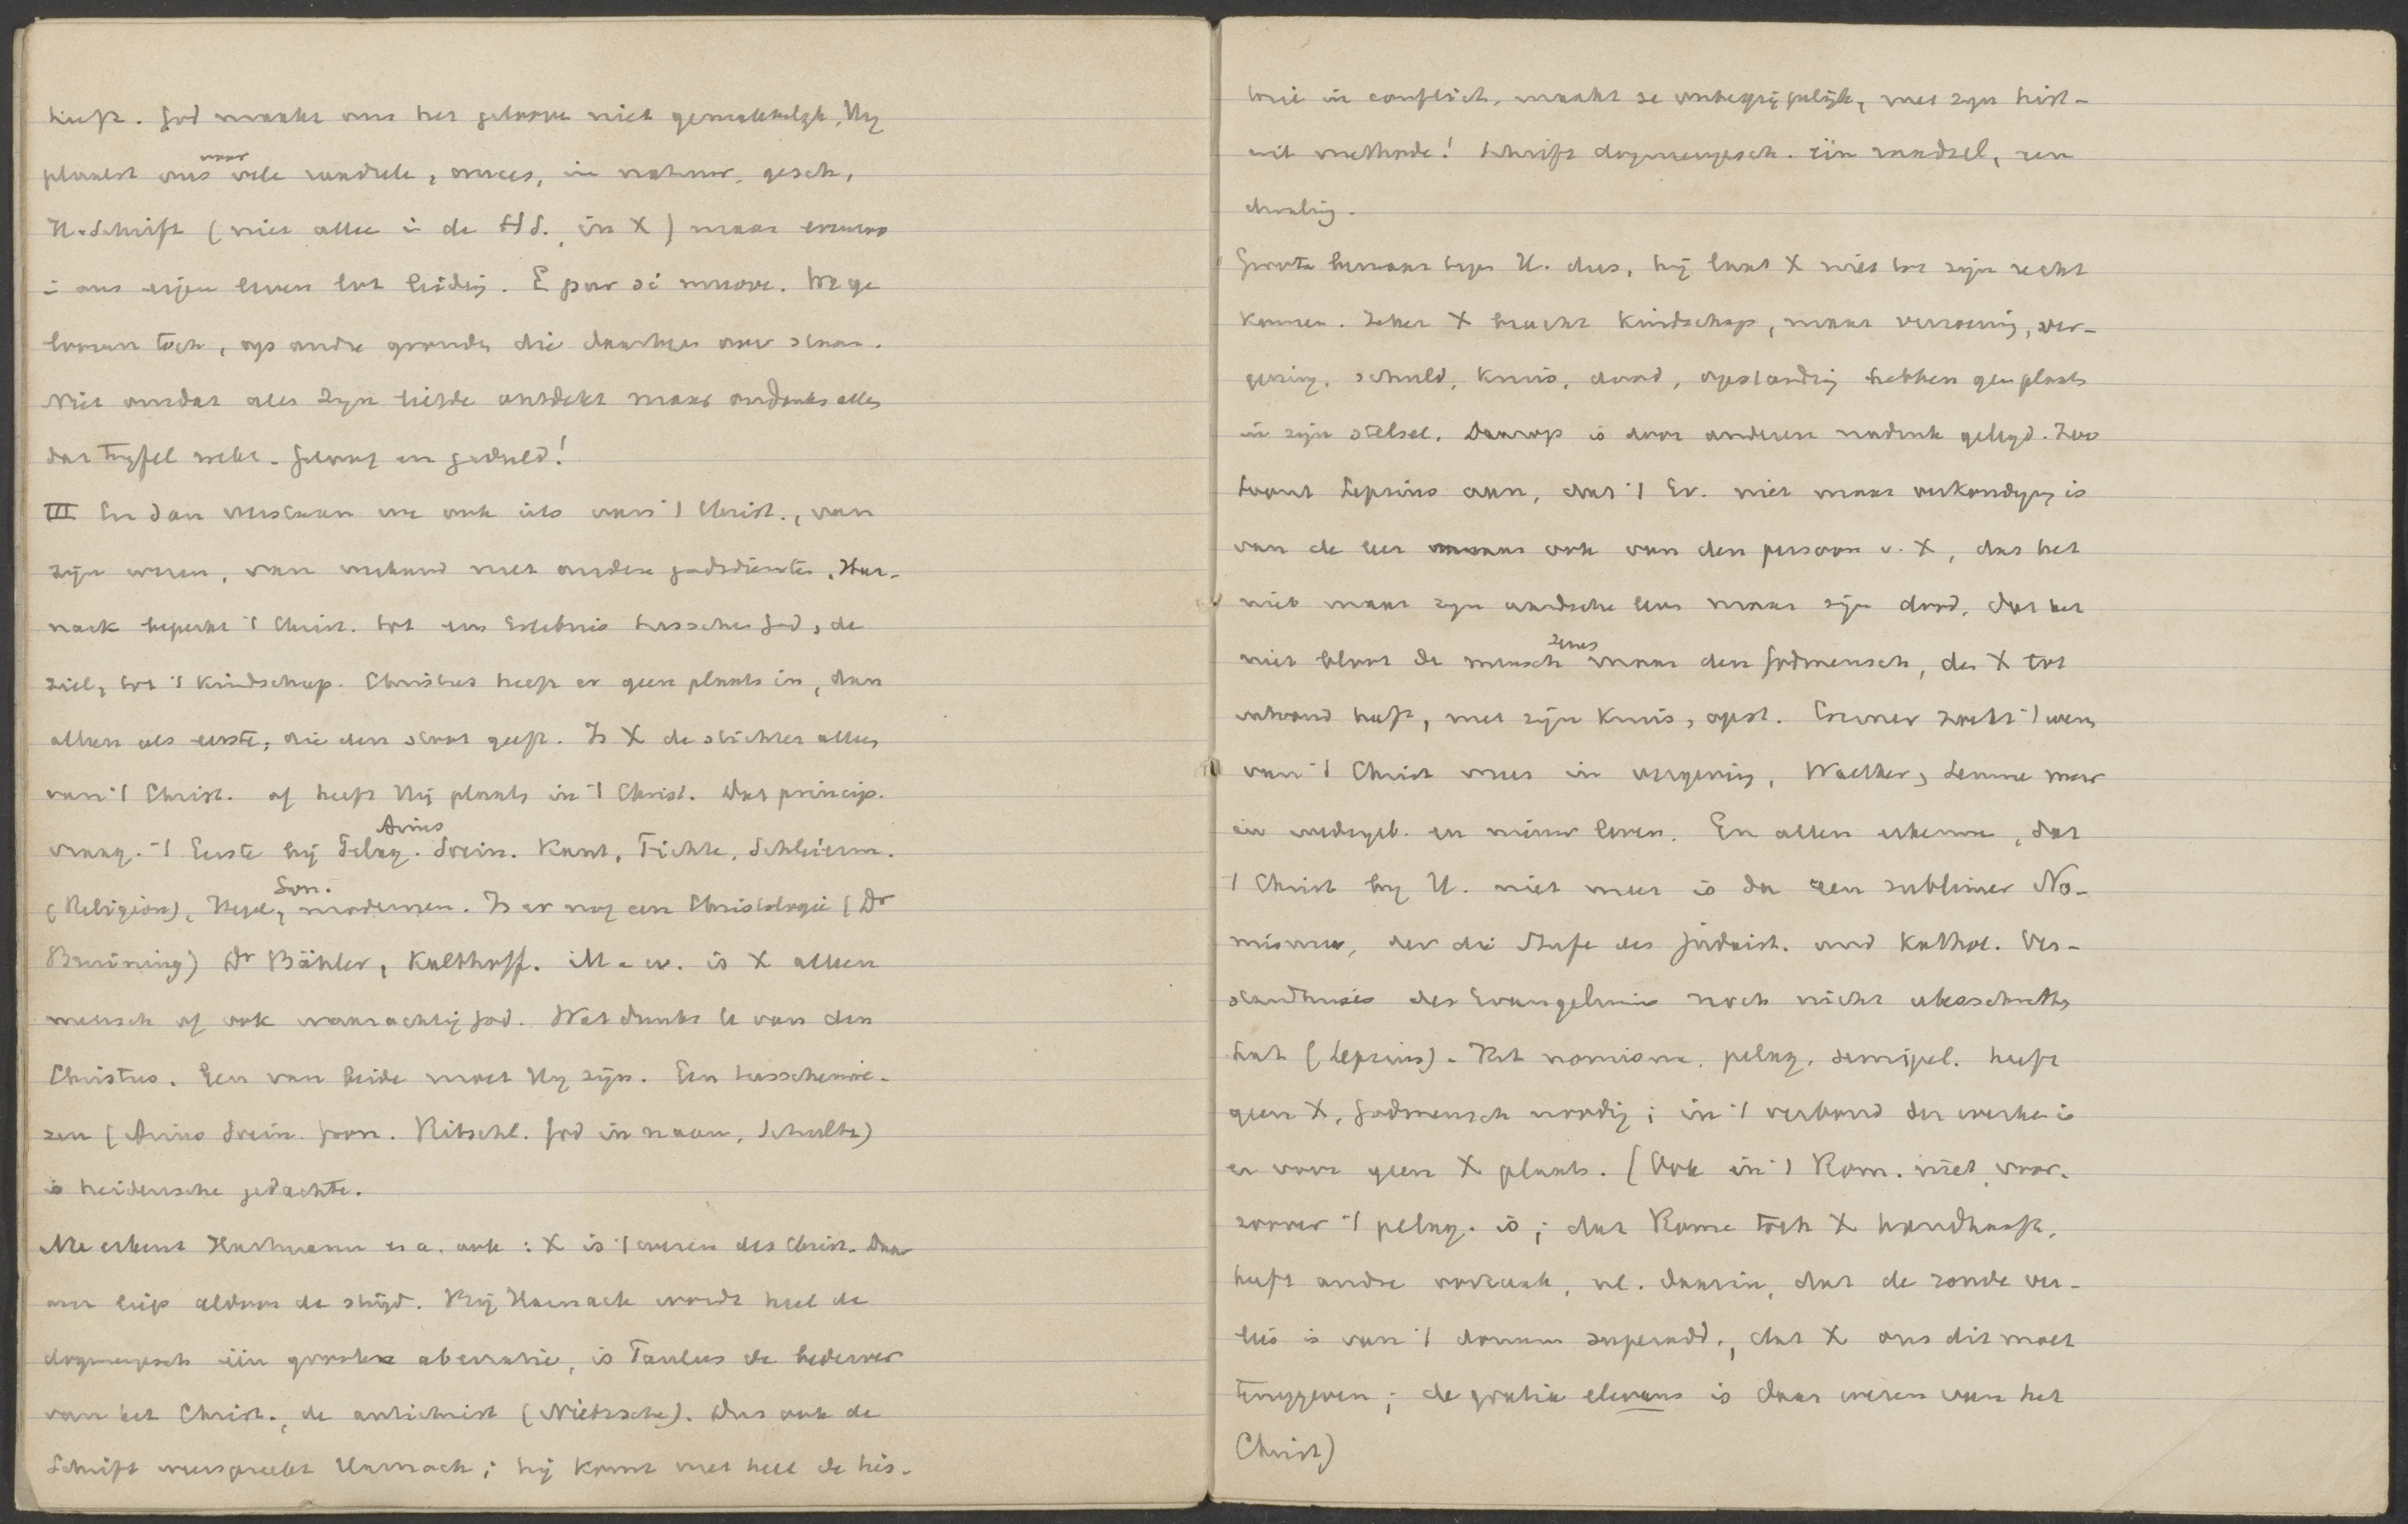 heeft. God maakt ons het gelooven niet gemakkelyk, Hy
plaatst ons voor vele raadsels, cruces, in natuur, gesch.,
H.Schrift (niet alleen i de HS., in X) maar evenzoo
i ons eigen leven tot leiding. E pur si muove. We ge
looven toch, op andre gronden die daarboven over staan.
Niet omdat alles Zyn liefde ontdekt maar ondanks alles
dat twyfel wekt. Geloof en geduld!
III En dan verstaan we ook iets van 't Christ., van
zijn wezen, van verband met andere godsdiensten. Har-
nack beperkt 't Christ. tot een Erlebnis tusschen God, de
ziel, tot 't kindschap. Christus heeft er geen plaats in, dan
alleen als eerste, die den stoot geeft. Is X de stichter alleen
van 't Christ. of heeft Hij plaats in 't Christ. Dat princip.
vraag. 't Eerste bij Pelag. Arius Socin. Kant, Fichte, Schleierm.
(Religion), Hegel, Gron. modernen. Is er nog een Christologie (Dr
Bruining) Dr Bähler, Kalthoff. M.a.w. is X alleen
mensch of ook waarachtig God. Wat dunkt U van den
Christus. Een van beide moet Hy zijn. Een tusschenwe-
zen (Arius Socin. Gron. Ritschl. God in naam, Schultz)
is heidensche gedachte.
Nu erkent Hartmann e.a. ook: X is 't wezen des Christ. Daar
over liep aldoor de strijd. Bij Harnack wordt heel de
dogmengesch één groote aberratie, is Paulus de bederver
van het Christ., de antichrist (Nietzsche). Dus ook de
Schrift weerspreekt Harnack; hij komt met heel de his-
torie in conflict, maakt ze onbegrijpelijk, met zyn hist-
crit methode! Schrift dogmengesch. één raadsel, een
dwaling.
Groote bezwaar tegen H. dus, hij laat X niet tot zijn recht
komen. Zeker X bracht kindschap, maar verzoening, ver-
geving, schuld, kruis, dood, opstanding hebben geen plaats
in zijn stelsel. Daarop is door anderen nadruk gelegd. Zoo
toont Lepsius aan, dat 't Ev. niet maar verkondiging is
van de leer maar ook van den persoon v. X, dat het
niet maar zyn aardsche leven maar zijn dood, dat het
niet bloot de mensch Jezus maar den Godmensch, den X tot
inhoud heeft, met zijn kruis, opst. Cremer zoekt 't wezen
van 't Christ meer in vergeving, Walther, Lemme meer
in wedergeb. en nieuw leven. En allen erkennen, dat
't Christ by H. niet meer is dan een sublimer No-
mismus, der die Stufe des judaist. und kathol. Ver-
ständnisses des Evangeliums noch nicht überschritten
hat (Lepsius). Het nomisme, pelag. semipel. heeft
geen X, Godmensch noodig; in 't verbond der werken is
er voor geen X plaats. (Ook in 't Rom. niet, voor-
zoover 't pelag. is; dat Rome toch X handhaaft,
heeft andre oorzaak, nl. daarin, dat de zonde ver-
lies is van 't donum superadd., dat X ons dit moet
teruggeven; de gratia elevans is daar wezen van het
Christ)